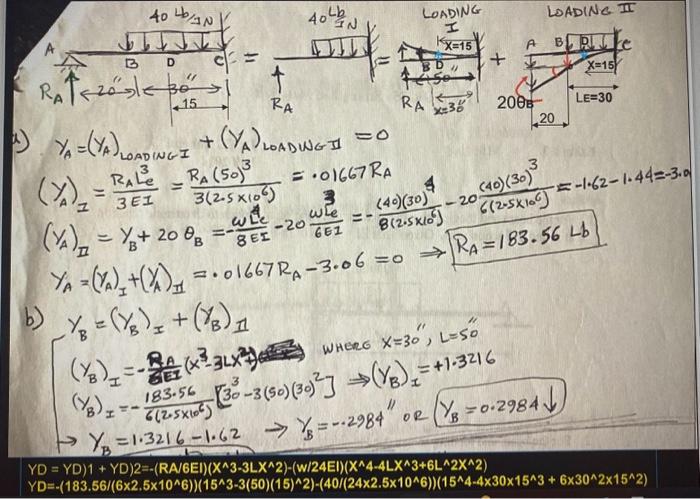 40 Lb/IN
40 Lb/IN
LOADING I
LOADING II
A B D C
RA
20" 30"
15
=
RA
=
X=15
B D
50"
RA
X=30"
+
A B D C
X=15
20θB
LE=30
20
a) YA=(YA)LOADING I + (YA)LOADING II = 0
(YA)I = RALe³/3EI = RA(50)³/3(2.5X10⁶) = .01667RA
(YA)II = YB + 20θB = -wLe⁴/8EI - 20 wLe³/6EI = -(40)(30)⁴/8(2.5X10⁶) - 20 (40)(30)³/6(2.5X10⁶) = -1.62-1.44=-3.0
YA = (YA)I + (YA)II = .01667RA - 3.06 = 0 ⇒ RA = 183.56 Lb
b) YB = (YB)I + (YB)II
(YB)I = -RA/6EI (X³-3LX²) WHERE X=30", L=50"
(YB)I = -183.56/6(2.5X10⁶) [30³-3(50)(30)²] ⇒ (YB)I = +1.3216
→ YB = 1.3216 - 1.62 → YB = -.2984" OR YB = 0.2984 ↓
YD = YD)1 + YD)2=-(RA/6EI)(X^3-3LX^2)-(w/24EI)(X^4-4LX^3+6L^2X^2)
YD=-(183.56/(6x2.5x10^6))(15^3-3(50)(15)^2)-(40/(24x2.5x10^6))(15^4-4x30x15^3 + 6x30^2x15^2)